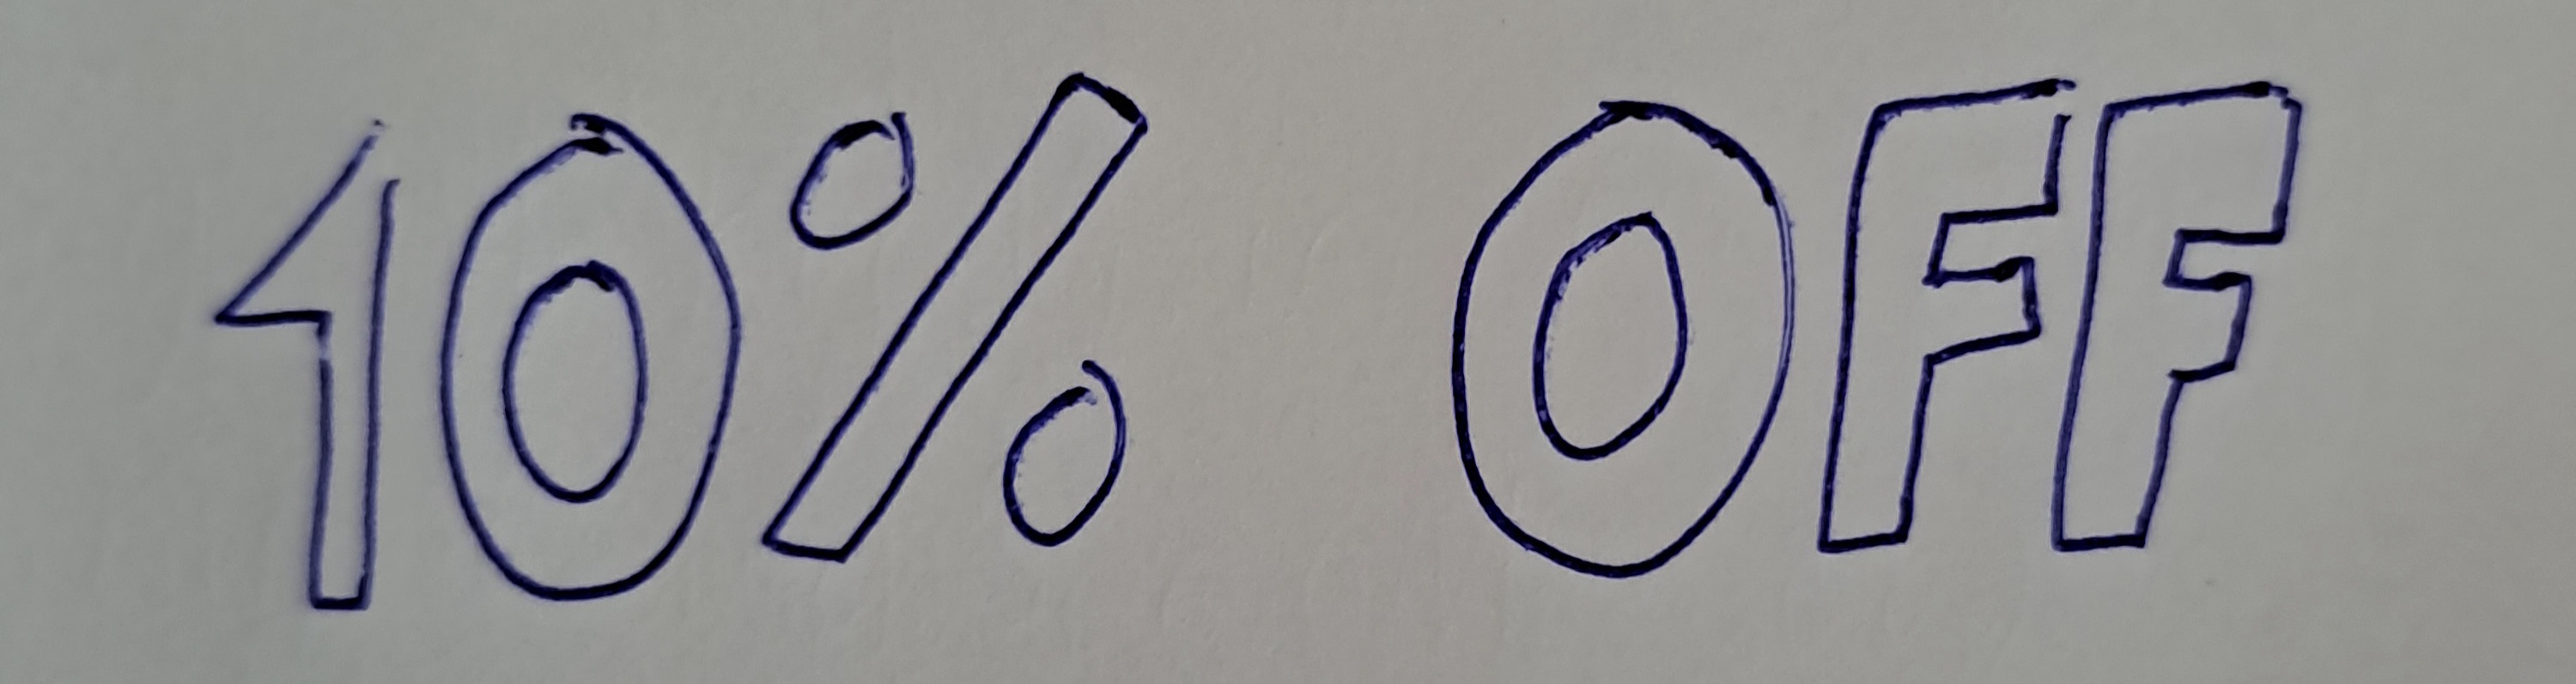 10% OFF